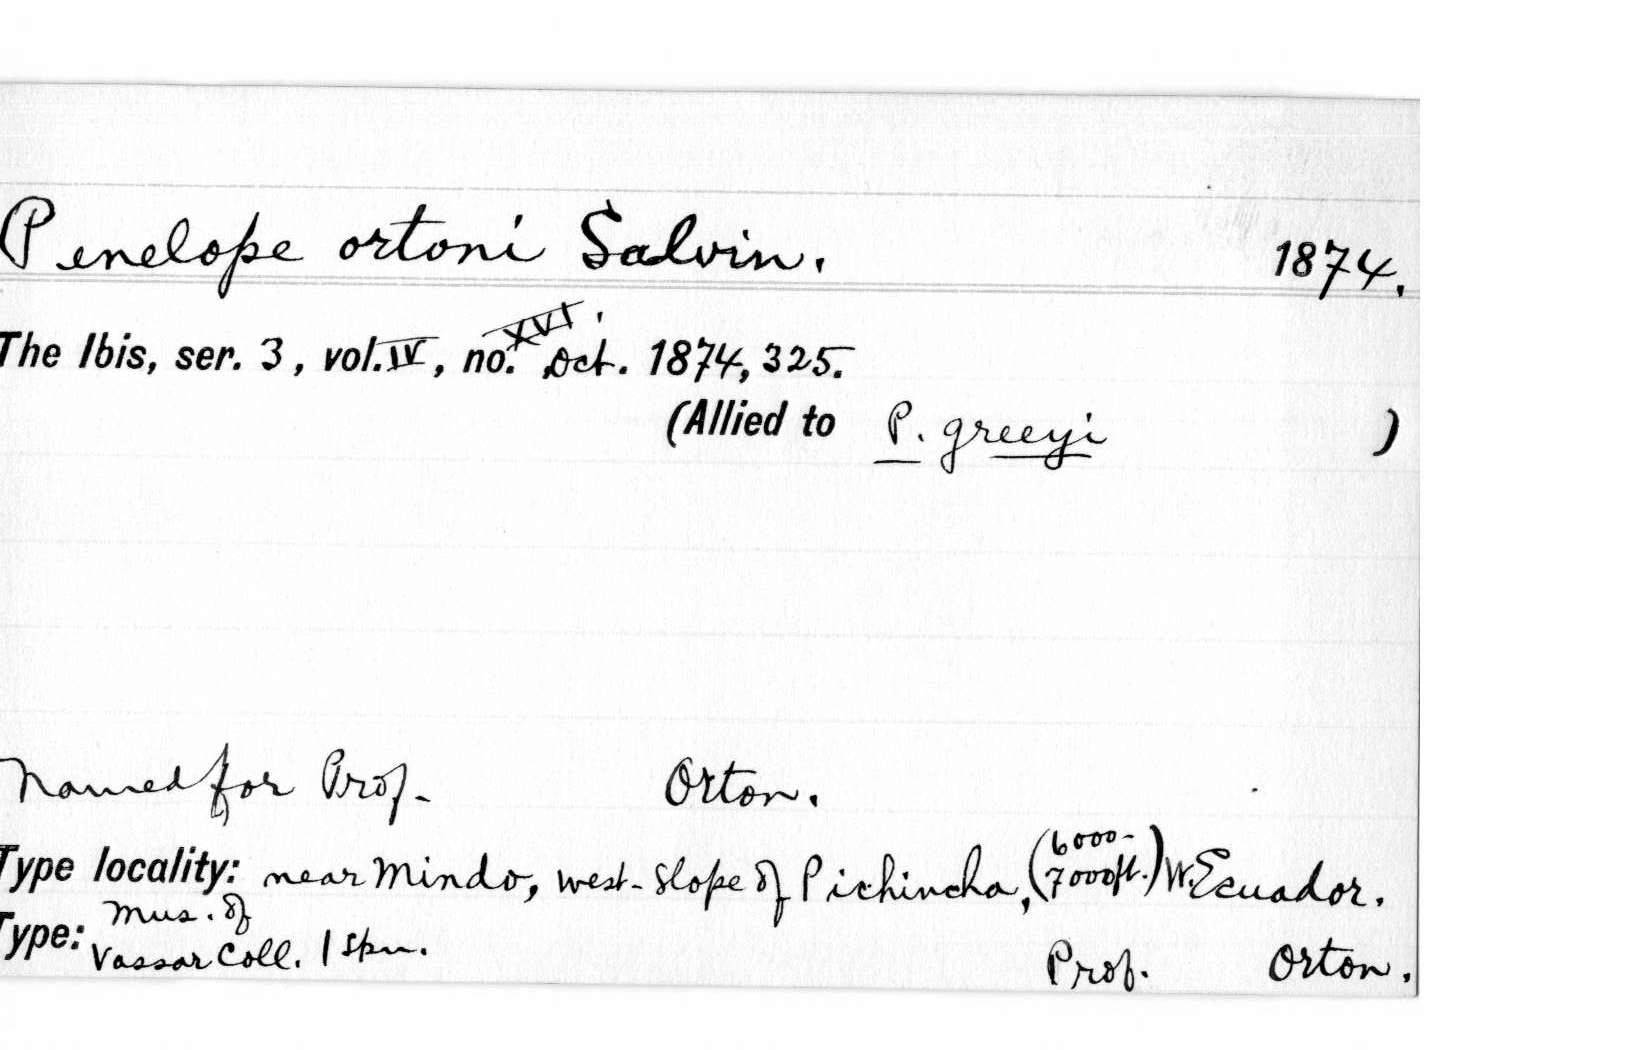 Penelope ortoni Salvin. 1874.
The Ibis, ser. 3, vol. IV, no. XVI, Oct. 1874, 325.
(Allied to P. greeyi )
Named for Prof. Orton.
Type locality: near Mindo, west slope of Pichincha, (6000-7000ft.) W. Ecuador.
Type: Mus. of Vassar Coll. 1 spn. Prof. Orton.